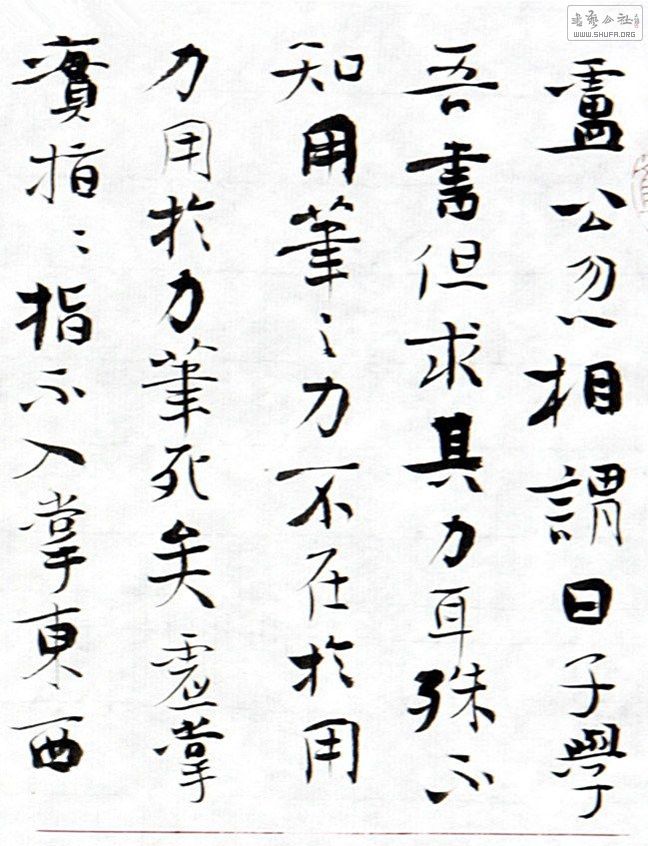 盧公忽相謂曰子學
吾書但求其力耳殊不
知用筆之力不在於用
力用於力筆死矣虛掌
實指々指不入掌東西
書藝公社
WWW.SHUFA.ORG